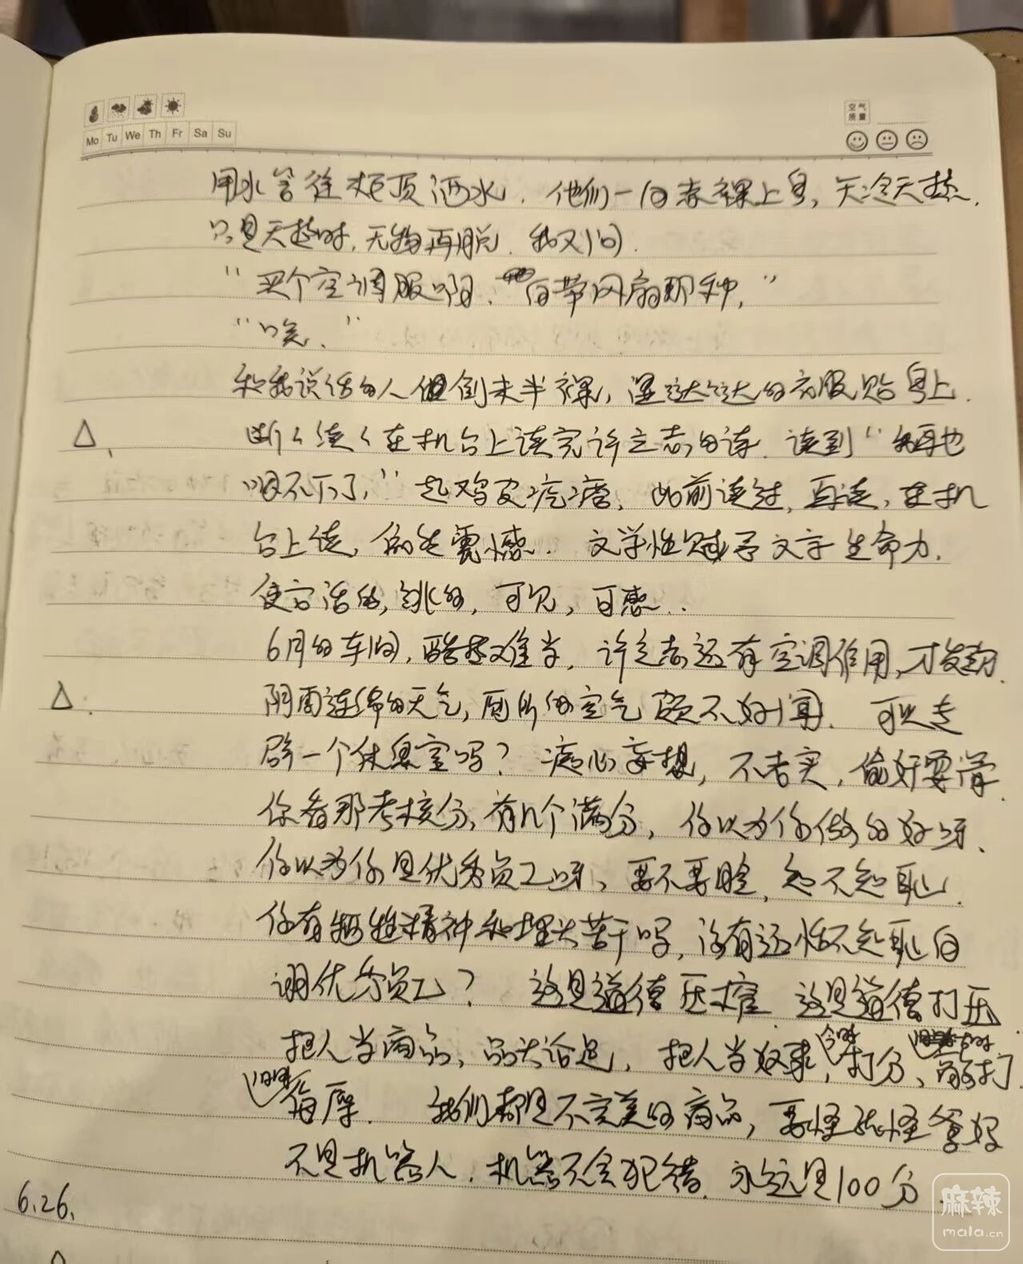 Mo Tu We Th Fr Sa Su
空气
质量
用水管往 顶洒水，他们一 裸上身，天冷天热，
只是天热时，无物再脱，我又问：
“买个空调服啊，自带风扇那种，”
“唉，”
和我说话的人但倒未半裸，湿 的衣服贴身上，
△、断断续续在机台上读完许立志的诗，读到“我再也
咽不下了，”起鸡皮疙瘩，此前读过，再读，在机
台上读，倍生震憾．文学性赋予文字生命力，
使它活的，跳的，可见，可感．．
6月的车间，酷热难当，许立志还有空调作用，才发
△．阴雨连绵的天气，厕所的空气颇不好闻．可以去
辟一个休息室吗？痴心妄想，不老实，偷奸耍滑，
你看那考核分，有几个满分，你以为你做的好呀、
你以为你是优秀员工呀、要不要脸，知不知耻．
你有牺牲精神和埋头苦干吗，没有还恬不知耻自
诩优秀员工？这是道德压榨 这是道德打压
把人当商品，品头论足，把人当奴隶，今时打分、 打
旧时侮辱．我们都是不完美的商品，要怪就怪爹妈
不是机器人．机器不会犯错．永远是100分．
6.26、
麻辣
mala.cn